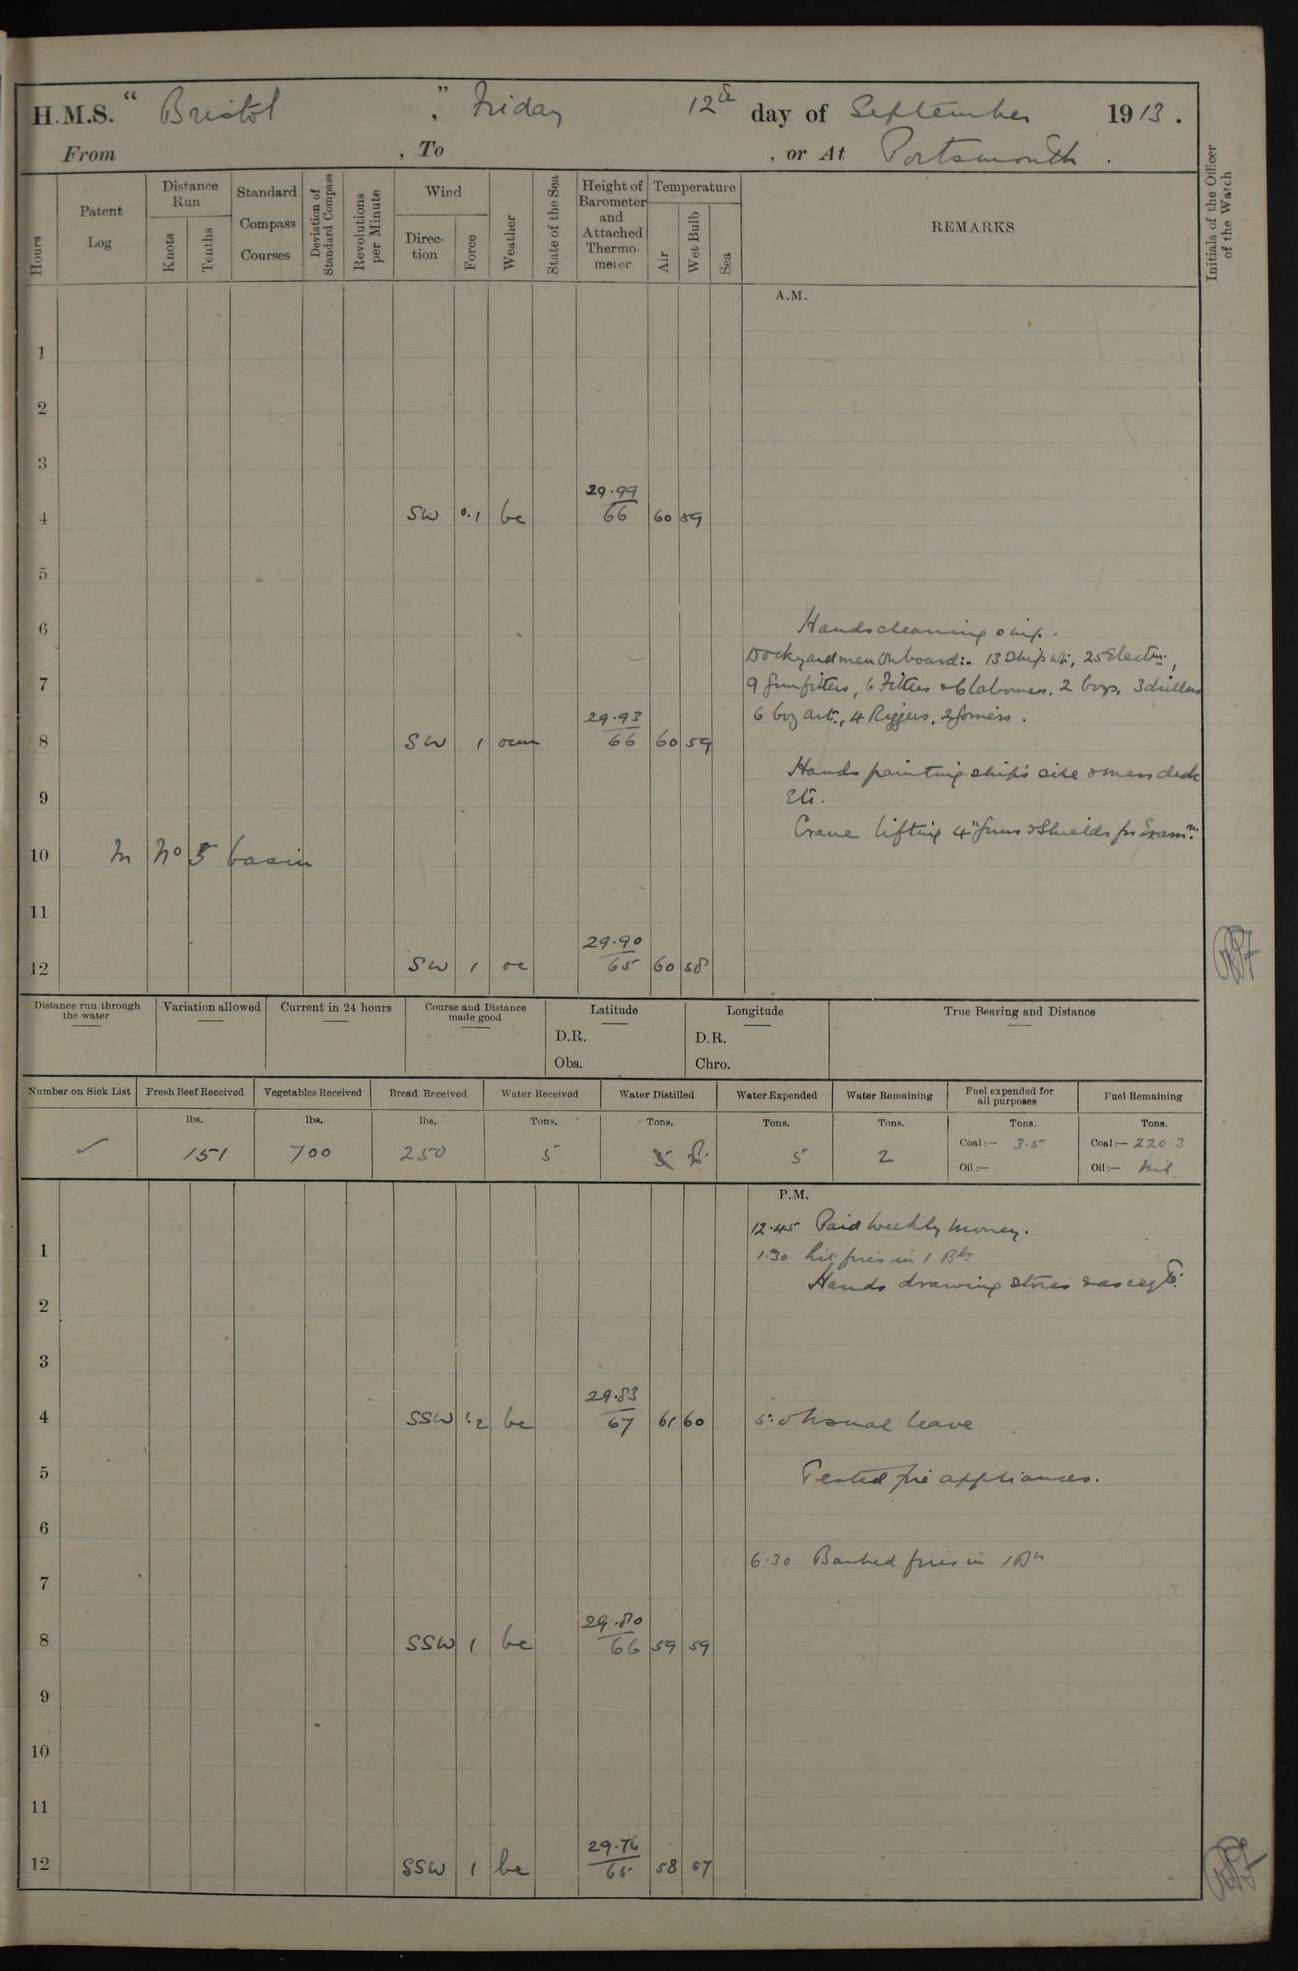 H.M.S. " Bristol ", Friday 12th day of September 1913.
From , To , or At Portsmouth.
Hours
Patent Log
Distance Run
Knots
Tenths
Standard Compass Courses
Deviation of Standard Compass
Revolutions per Minute
Wind
Direc-tion
Force
Weather
State of the Sea
Height of Barometer and Attached Thermo-meter
Temperature
Air
Wet Bulb
Sea
REMARKS
Initials of the Officer of the Watch
A.M.
1
2
3
29.99
4 SW 0.1 bc 66 60 59
5
6 Hands cleaning ship.
Dockyard men onboard:- 13 Shipwts, 25 Electn.,
7 9 Gunfitters, 6 Fitters & 6 labourers, 2 boys, 3 drillers
29.93 6 boy art., 4 Riggers, 2 Joiners.
8 SW 1 ocm 66 60 59
Hands painting ship's side & mess deck
9 etc.
Crane lifting 4" guns & shields for Examn.
10 In No 5 basin
11
29.90
12 SW 1 oc 65 60 58
Distance run through the water
Variation allowed
Current in 24 hours
Course and Distance made good
Latitude
D.R.
Obs.
Longitude
D.R.
Chro.
True Bearing and Distance
Number on Sick List
Fresh Beef Received
Vegetables Received
Bread Received
Water Received
Water Distilled
Water Expended
Water Remaining
Fuel expended for all purposes
Fuel Remaining
lbs. lbs. lbs. Tons. Tons. Tons. Tons. Tons. Tons.
151 700 250 5 5 2
Coal:— 3.5 Coal:— 220.3
Oil:— Oil:— Nil
P.M.
12.45 Paid weekly money.
1 1.30 Lit fires in 1 Blr
Hands drawing stores & as reqte.
2
3
29.83
4 SSW 1.2 bc 67 61 60 5.0 Usual leave
5 Tested fire appliances.
6
6.30 Banked fires in 1 Blr
7
29.80
8 SSW 1 bc 66 59 59
9
10
11
29.76
12 SSW 1 bc 65 58 57